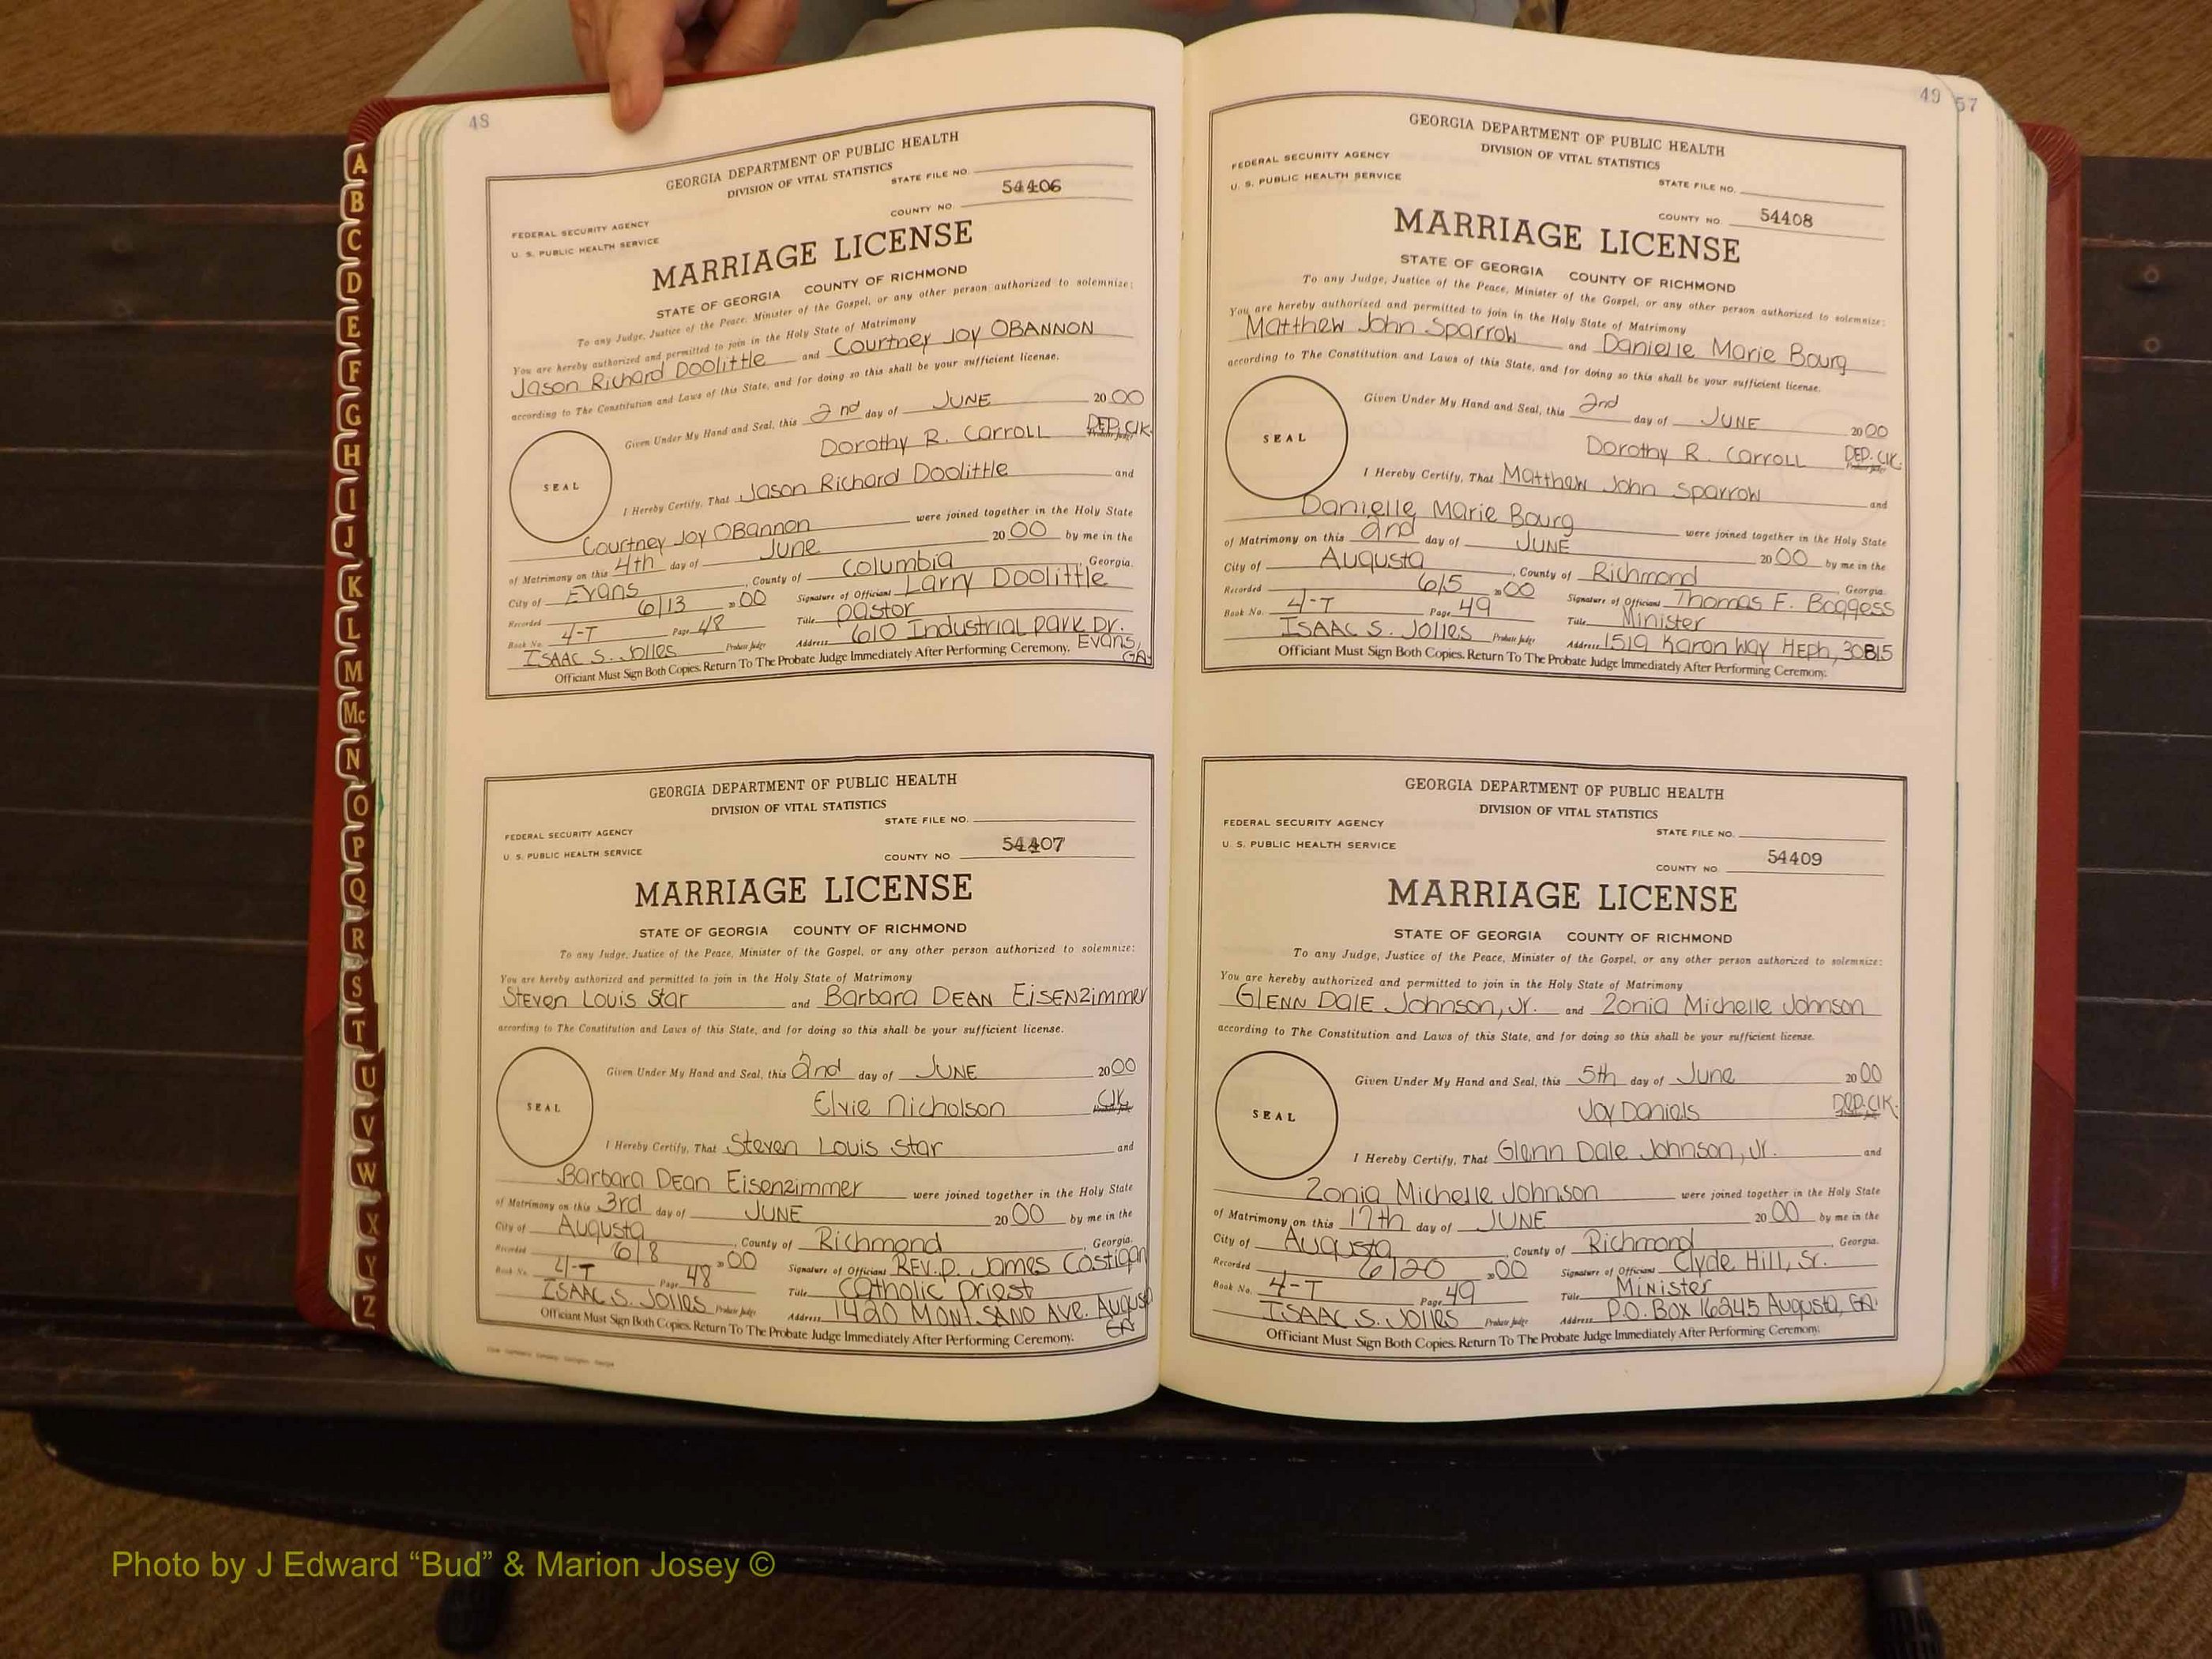 48
GEORGIA DEPARTMENT OF PUBLIC HEALTH
DIVISION OF VITAL STATISTICS
STATE FILE NO.
54406
COUNTY NO.
FEDERAL SECURITY AGENCY
U. S. PUBLIC HEALTH SERVICE
MARRIAGE LICENSE
STATE OF GEORGIA COUNTY OF RICHMOND
To any Judge, Justice of the Peace, Minister of the Gospel, or any other person authorized to solemnize:
You are hereby authorized and permitted to join in the Holy State of Matrimony
Jason Richard Doolittle and Courtney Joy OBANNON
according to The Constitution and Laws of this State, and for doing so this shall be your sufficient license.
Given Under My Hand and Seal, this 2nd day of JUNE 2000
Dorothy R. Carroll DEP. Clk.
SEAL
I Hereby Certify, That Jason Richard Doolittle and
Courtney Joy OBannon were joined together in the Holy State
of Matrimony on this 4th day of June 2000 by me in the
City of Evans, County of Columbia, Georgia.
Recorded 6/13 2000 Signature of Officiant Larry Doolittle
Book No. 4-T Page 48 Title Pastor
ISAAC S. Jolles Probate Judge Address 610 Industrial Park Dr. Evans, GA.
Officiant Must Sign Both Copies. Return To The Probate Judge Immediately After Performing Ceremony.
GEORGIA DEPARTMENT OF PUBLIC HEALTH
DIVISION OF VITAL STATISTICS
STATE FILE NO.
FEDERAL SECURITY AGENCY
U. S. PUBLIC HEALTH SERVICE
COUNTY NO. 54407
MARRIAGE LICENSE
STATE OF GEORGIA COUNTY OF RICHMOND
To any Judge, Justice of the Peace, Minister of the Gospel, or any other person authorized to solemnize:
You are hereby authorized and permitted to join in the Holy State of Matrimony
Steven Louis Star and Barbara DEAN EisENzimmer
according to The Constitution and Laws of this State, and for doing so this shall be your sufficient license.
Given Under My Hand and Seal, this 2nd day of JUNE 2000
Elvie Nicholson Clk.
SEAL
I Hereby Certify, That Steven Louis Star and
Barbara Dean Eisenzimmer were joined together in the Holy State
of Matrimony on this 3rd day of JUNE 2000 by me in the
City of Augusta, County of Richmond, Georgia.
Recorded 6/8 2000 Signature of Officiant REV. D. James Costigan
Book No. 4-T Page 48 Title Catholic Priest
ISAAC S. Jolles Probate Judge Address 1420 MONT. SANO AVE. August GA
Officiant Must Sign Both Copies. Return To The Probate Judge Immediately After Performing Ceremony.
49 57
GEORGIA DEPARTMENT OF PUBLIC HEALTH
DIVISION OF VITAL STATISTICS
FEDERAL SECURITY AGENCY
U. S. PUBLIC HEALTH SERVICE
STATE FILE NO.
COUNTY NO. 54408
MARRIAGE LICENSE
STATE OF GEORGIA COUNTY OF RICHMOND
To any Judge, Justice of the Peace, Minister of the Gospel, or any other person authorized to solemnize:
You are hereby authorized and permitted to join in the Holy State of Matrimony
Matthew John Sparrow and Danielle Marie Bourg
according to The Constitution and Laws of this State, and for doing so this shall be your sufficient license.
Given Under My Hand and Seal, this 2nd day of JUNE 2000
Dorothy R. Carroll DEP. Clk.
SEAL
I Hereby Certify, That Matthew John Sparrow and
Danielle Marie Bourg were joined together in the Holy State
of Matrimony on this 2nd day of JUNE 2000 by me in the
City of Augusta, County of Richmond, Georgia.
Recorded 6/5 2000 Signature of Officiant Thomas E. Boggess
Book No. 4-T Page 49 Title Minister
ISAAC S. Jolles Probate Judge Address 1519 Karon Way Heph, 30815
Officiant Must Sign Both Copies. Return To The Probate Judge Immediately After Performing Ceremony.
GEORGIA DEPARTMENT OF PUBLIC HEALTH
DIVISION OF VITAL STATISTICS
FEDERAL SECURITY AGENCY
U. S. PUBLIC HEALTH SERVICE
STATE FILE NO.
COUNTY NO. 54409
MARRIAGE LICENSE
STATE OF GEORGIA COUNTY OF RICHMOND
To any Judge, Justice of the Peace, Minister of the Gospel, or any other person authorized to solemnize:
You are hereby authorized and permitted to join in the Holy State of Matrimony
GLENN DALE Johnson, Jr. and Zonia Michelle Johnson
according to The Constitution and Laws of this State, and for doing so this shall be your sufficient license.
Given Under My Hand and Seal, this 5th day of June 2000
Joy Daniels Dep. Clk.
SEAL
I Hereby Certify, That Glenn Dale Johnson, Jr. and
Zonia Michelle Johnson were joined together in the Holy State
of Matrimony on this 17th day of JUNE 2000 by me in the
City of Augusta, County of Richmond, Georgia.
Recorded 6/20 2000 Signature of Officiant Clyde Hill, Sr.
Book No. 4-T Page 49 Title Minister
ISAAC S. Jolles Probate Judge Address P.O. Box 16245 Augusta, GA.
Officiant Must Sign Both Copies. Return To The Probate Judge Immediately After Performing Ceremony.
A
B
C
D
E
F
G
H
I
J
K
L
M
Mc
N
O
P
Q
R
S
T
U
V
W
X
Y
Z
Photo by J Edward “Bud” & Marion Josey ©